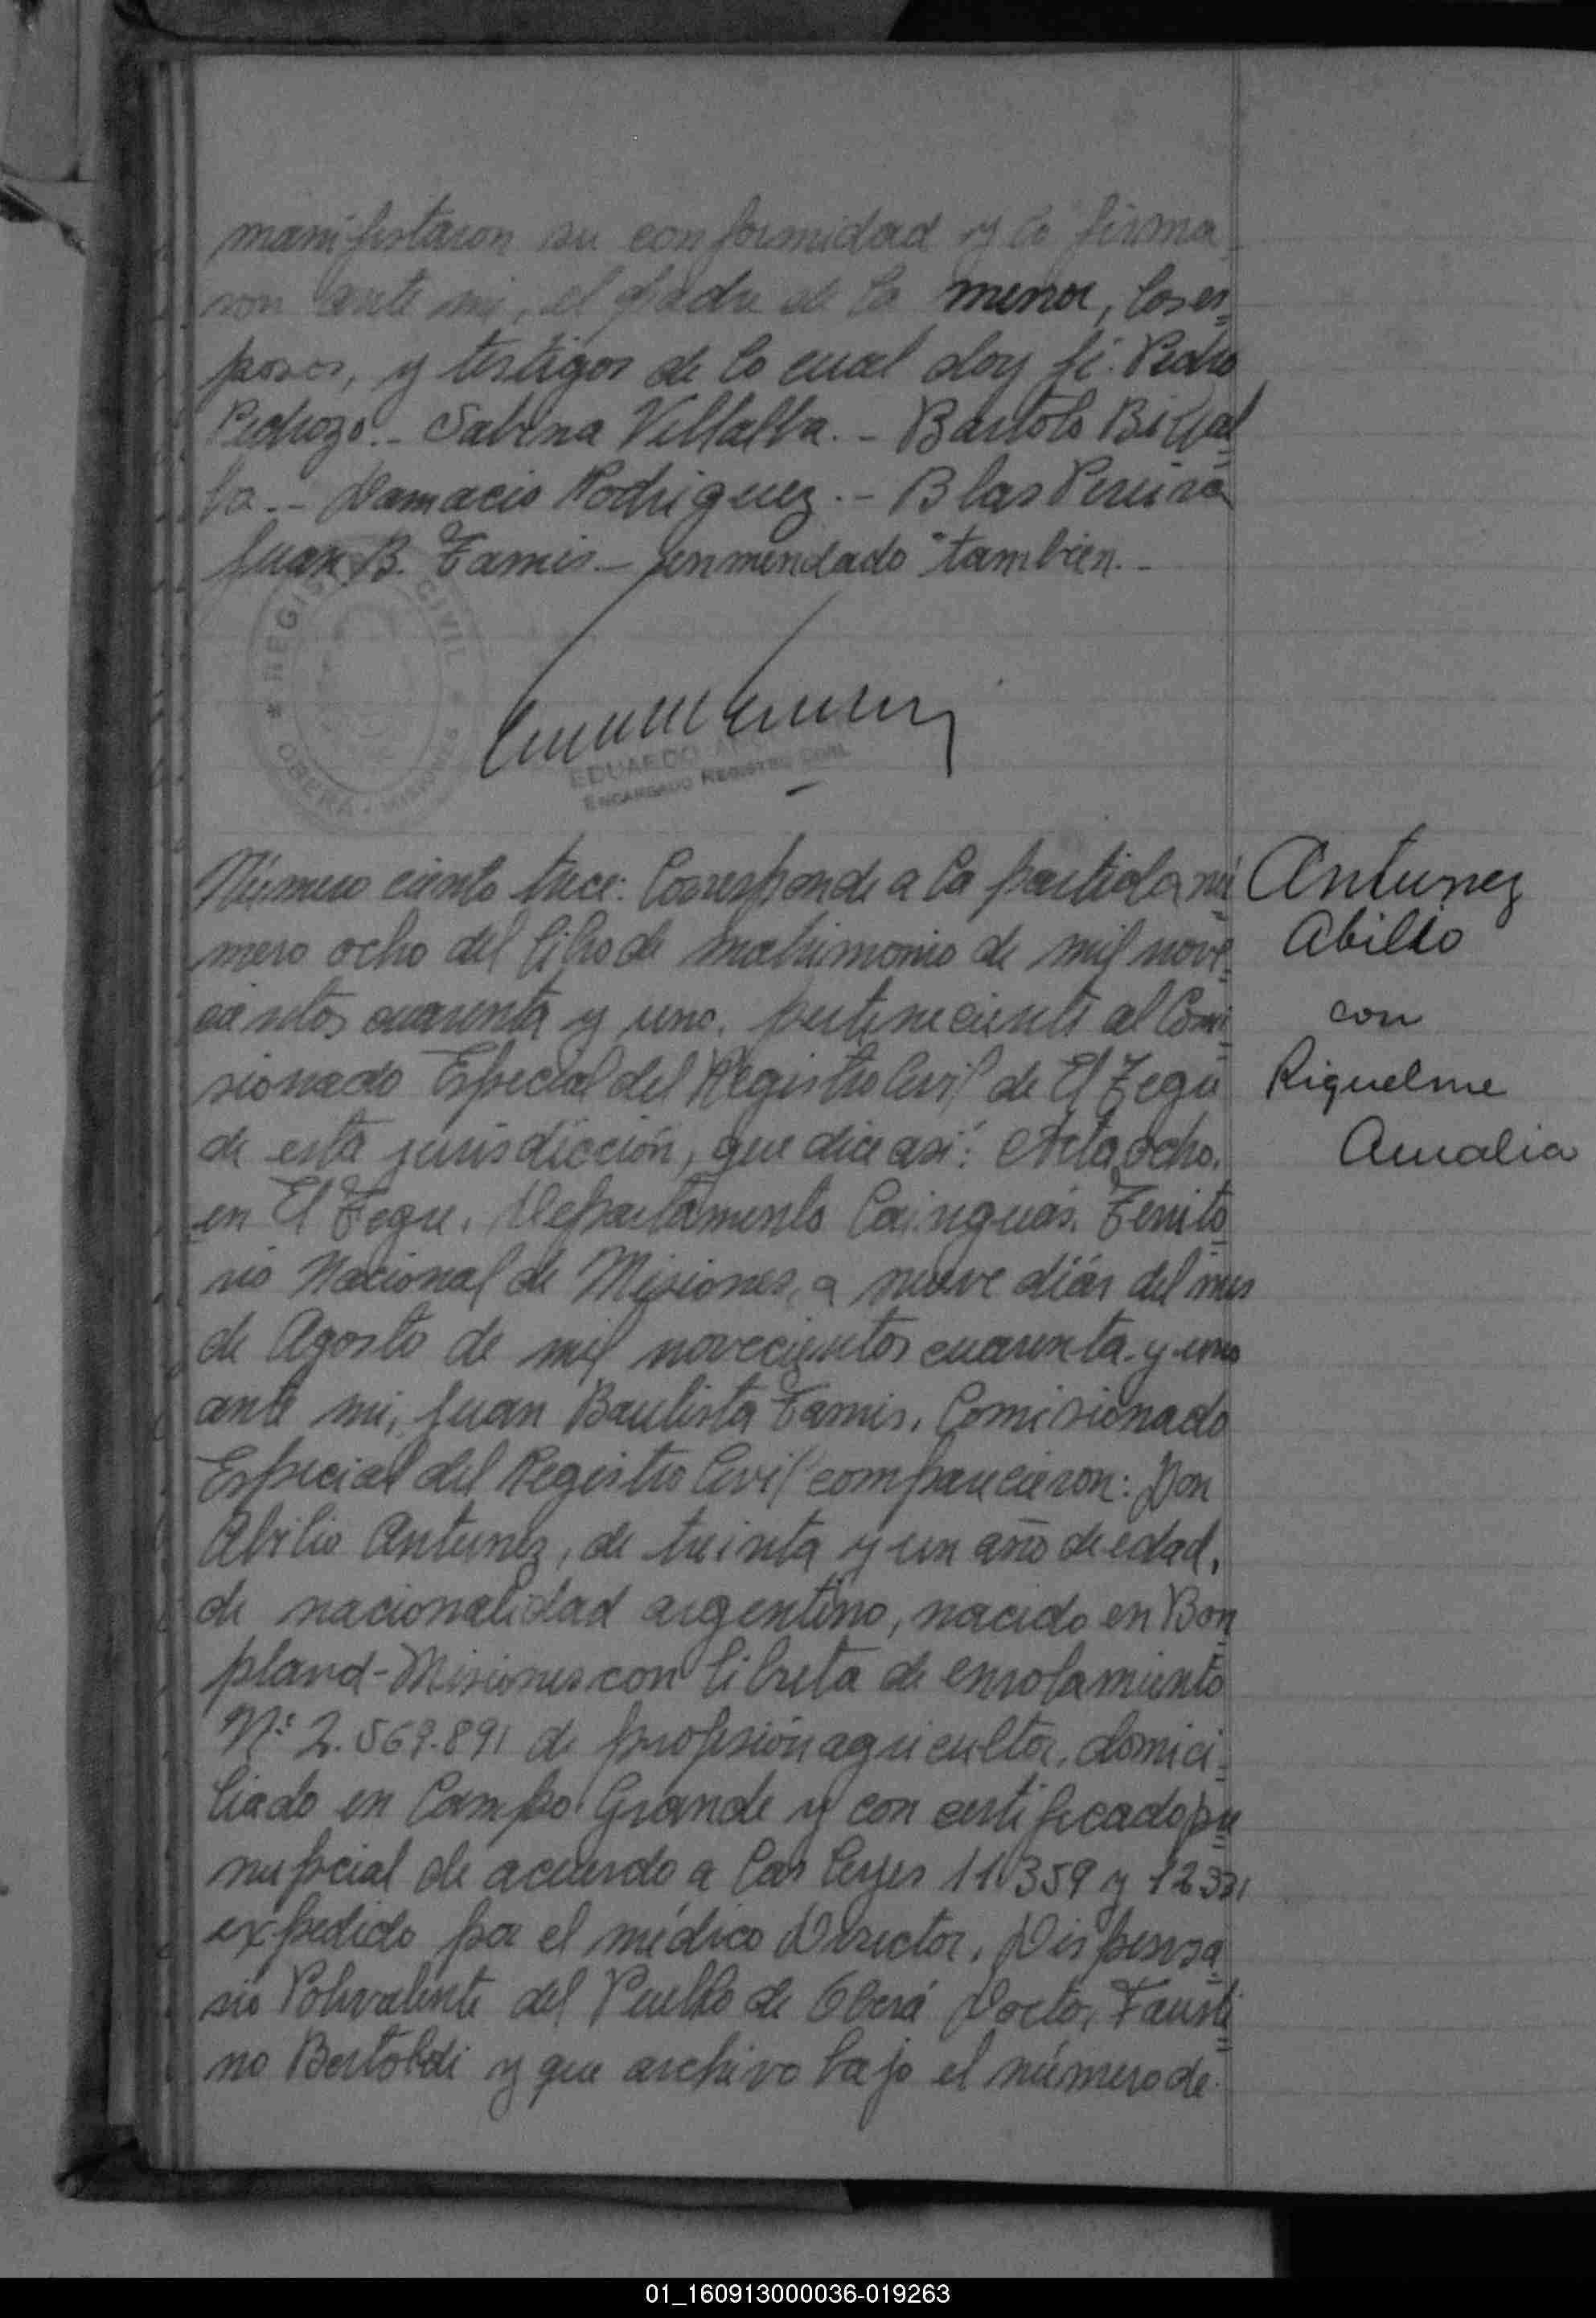 manifestaron su conformidad y la firma
ron ante mi, el padre de la menor, los es=
posos, y testigos de lo cual doy fé. Pedro
Pedrozo.- Sabina Villalba.- Bartolo Billal=
ba.- Damacio Rodriguez.- Blas Pereira
Juan B. Tamis.- enmendado "tambien.-
REGISTRO CIVIL
OBERA - MISIONES
EDUARDO
ENCARGADO REGISTRO CIVIL
Número ciento trece: Corresponde a la partida nú=
mero ocho del libro de matrimonio de mil nove=
cientos cuarenta y uno. perteneciente al Comi=
sionado Especial del Registro Civil de El Tegu
de esta jurisdicción, que dice así: Acta ocho.
en El Tegu. Departamento Cainguás. Territo=
rio Nacional de Misiones, a nueve diás del mes
de Agosto de mil novecientos cuarenta y uno
ante mi, Juan Bautista Tamis. Comisionado
Especial del Registro Civil comparecieron: Don
Abilio Antunez, de treinta y un año de edad,
de nacionalidad argentino, nacido en Bon=
pland-Misiones con libreta de enrolamiento
Nº 2.569.891 de profesión agricultor. domici=
liado en Campo Grande y con certificado pre=
nupcial de acuerdo a las leyes 11.359 y 12331
expedido por el médico Director, Dispensa=
rio Polivalente del Pueblo de Oberá Doctor Fausti=
no Bertoldi y que archivo bajo el número de
Antunez
Abilio
con
Riquelme
Amalia
01_160913000036-019263